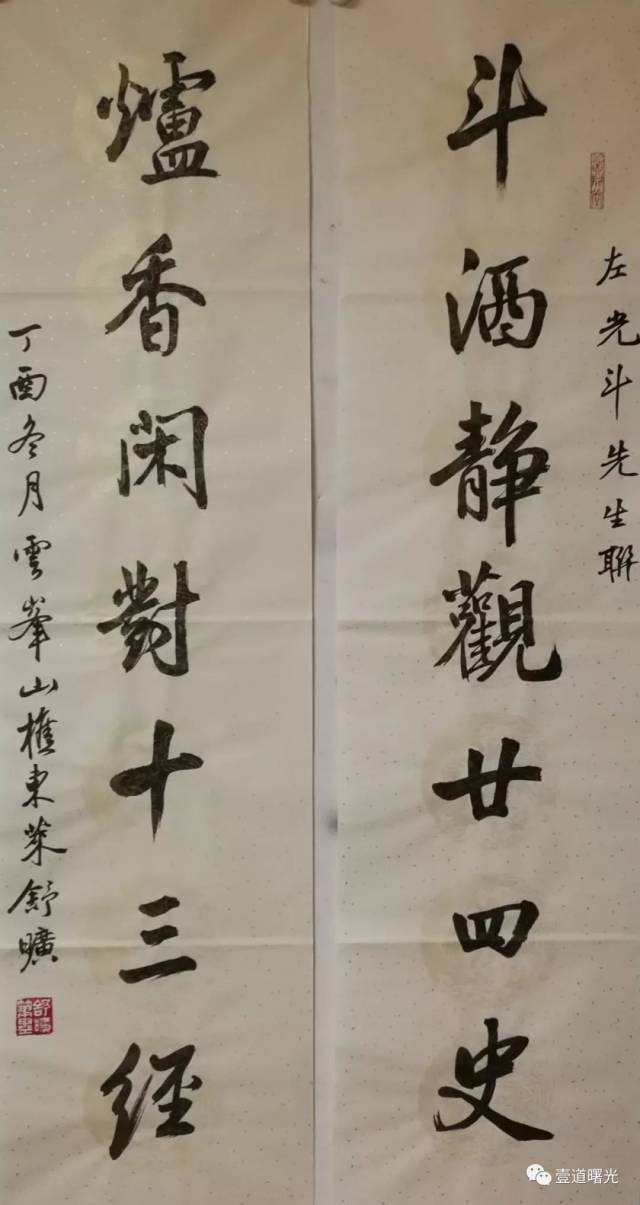 左光斗先生聯
斗酒静觀廿四史
爐香閑對十三経
丁酉冬月雲峯山樵東萊舒曠
壹道曙光